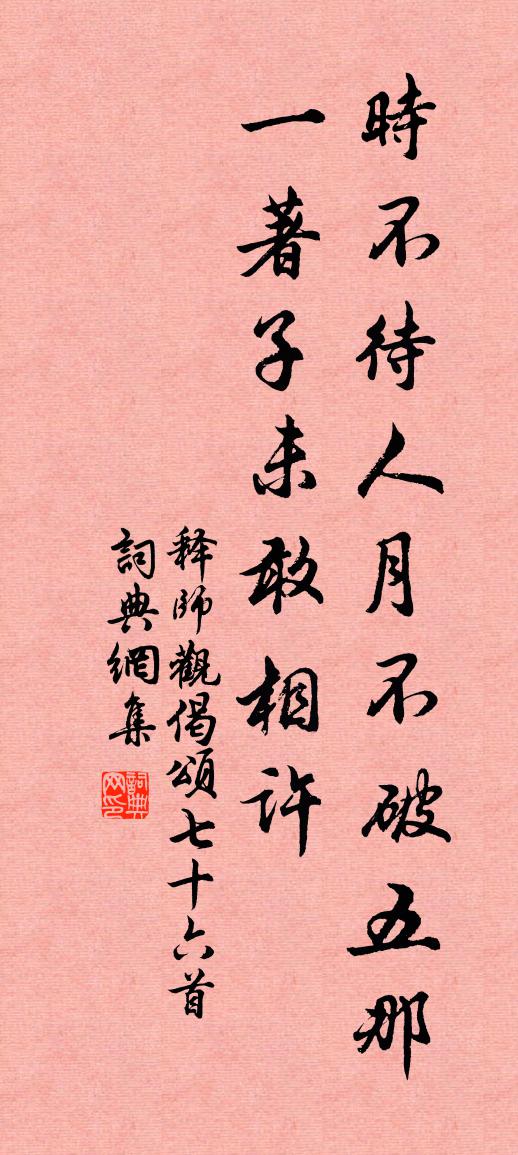 時不待人月不破五那
一著子未敢相許
释師觀偈頌七十六首
詞典網集
詞典網印